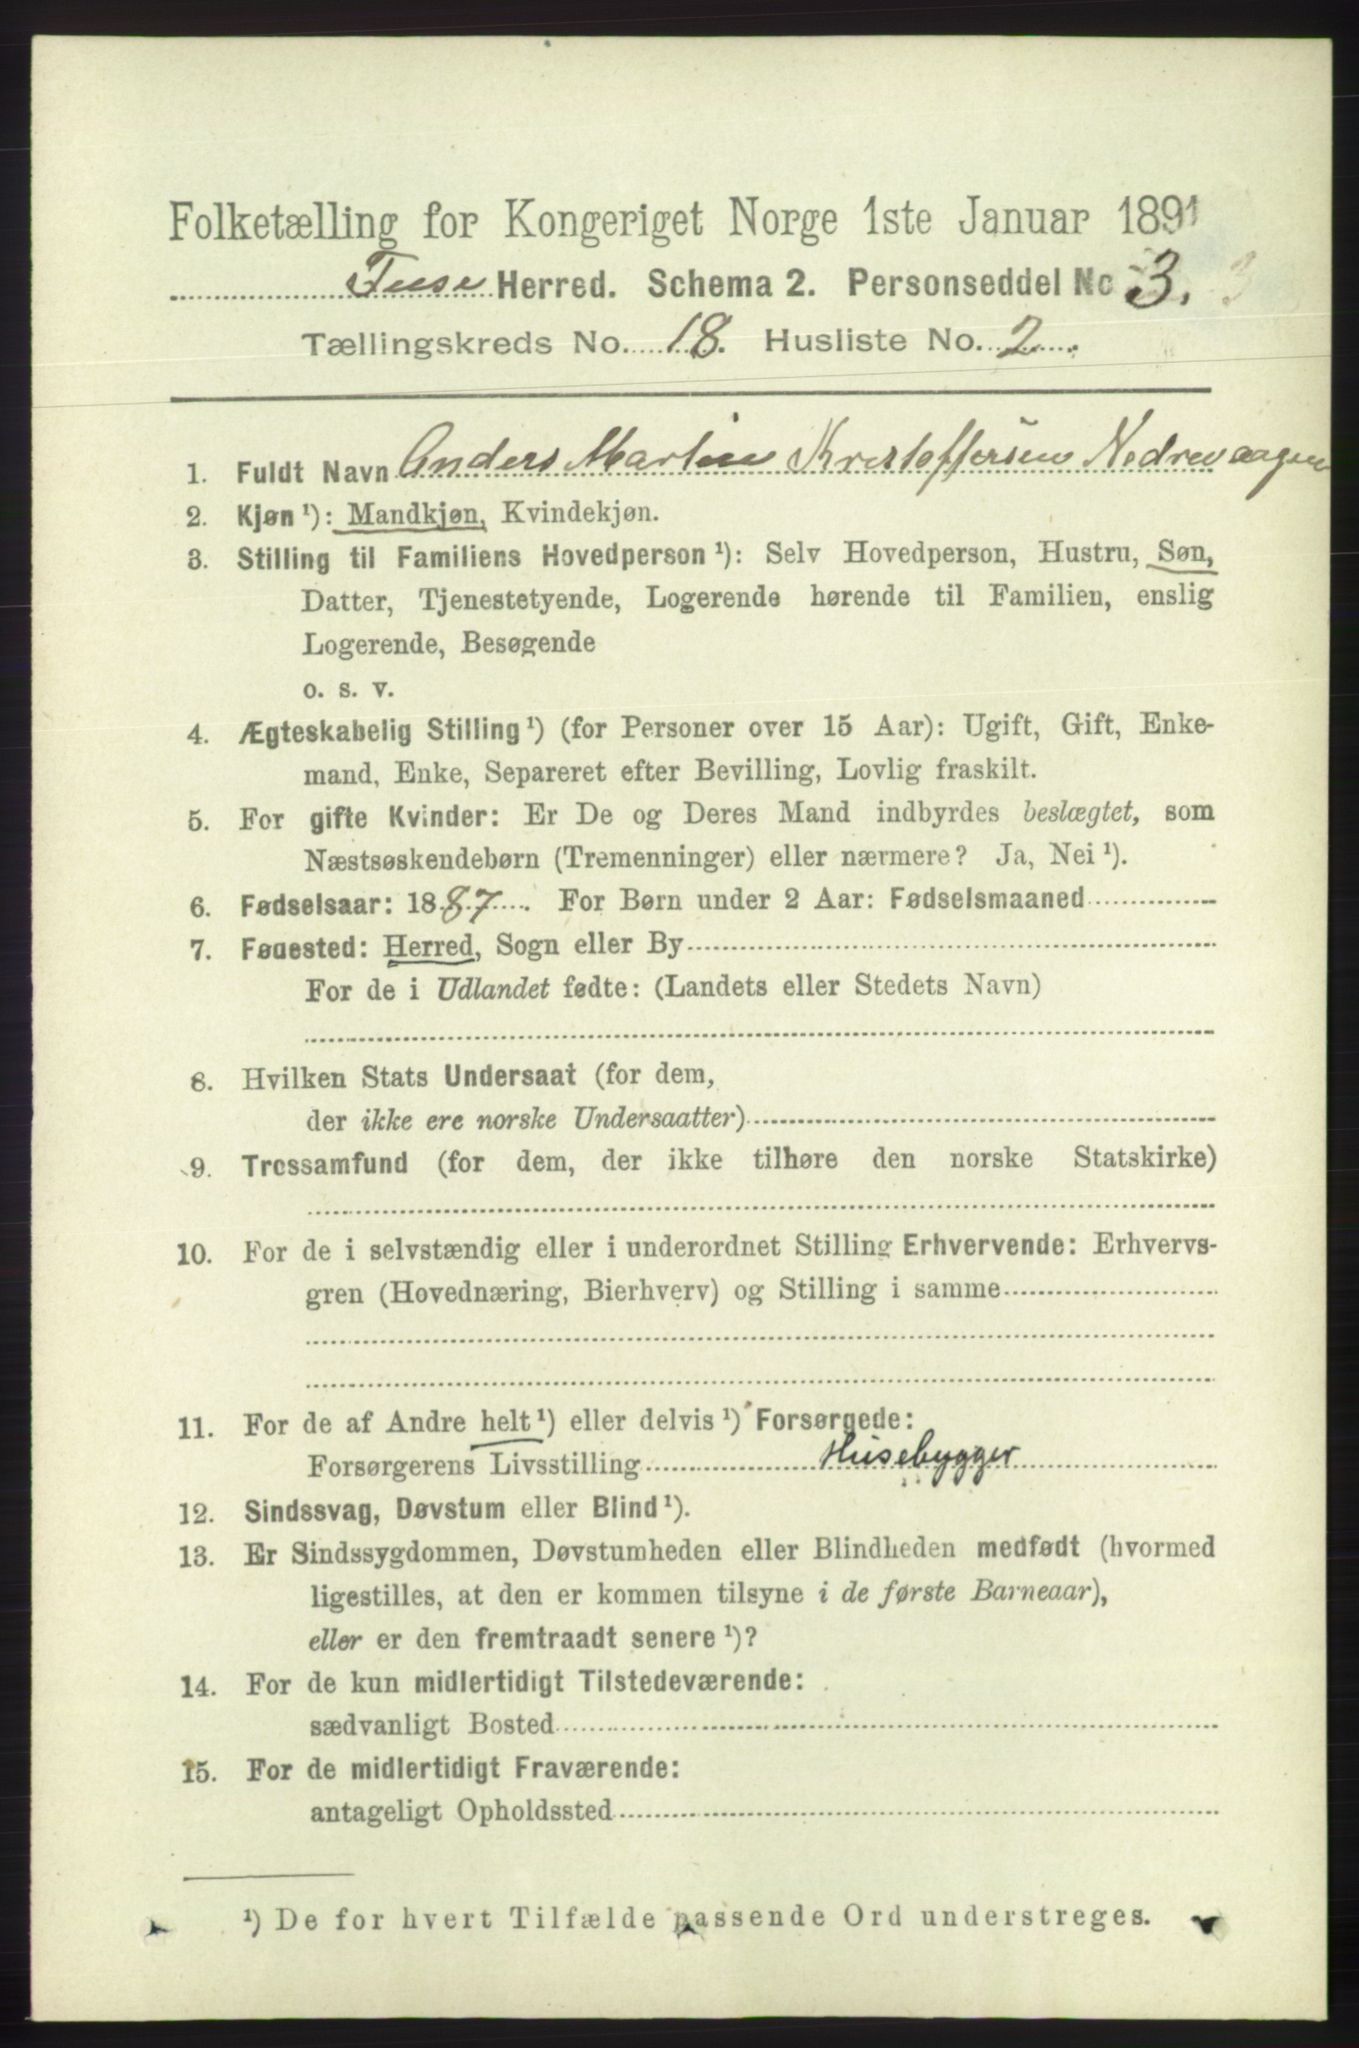 Folketælling for Kongeriget Norge 1ste Januar 1891
Fuse Herred. Schema 2. Personseddel No 3. 3
Tællingskreds No. 18. Husliste No. 2.
1. Fuldt Navn Anders Martin Kristoffersen Nedrevaagen
2. Kjøn ¹): Mandkjøn, Kvindekjøn.
3. Stilling til Familiens Hovedperson ¹): Selv Hovedperson, Hustru, Søn,
Datter, Tjenestetyende, Logerende hørende til Familien, enslig
Logerende, Besøgende
o. s. v.
4. Ægteskabelig Stilling ¹) (for Personer over 15 Aar): Ugift, Gift, Enke-
mand, Enke, Separeret efter Bevilling, Lovlig fraskilt.
5. For gifte Kvinder: Er De og Deres Mand indbyrdes beslægtet, som
Næstsøskendebørn (Tremenninger) eller nærmere? Ja, Nei ¹).
6. Fødselsaar: 1887. For Børn under 2 Aar: Fødselsmaaned
7. Fødested: Herred, Sogn eller By
For de i Udlandet fødte: (Landets eller Stedets Navn)
8. Hvilken Stats Undersaat (for dem,
der ikke ere norske Undersaatter)
9. Trossamfund (for dem, der ikke tilhøre den norske Statskirke)
10. For de i selvstændig eller i underordnet Stilling Erhvervende: Erhvervs-
gren (Hovednæring, Bierhverv) og Stilling i samme
11. For de af Andre helt ¹) eller delvis ¹) Forsørgede:
Forsørgerens Livsstilling Husebygger
12. Sindssvag, Døvstum eller Blind ¹).
13. Er Sindssygdommen, Døvstumheden eller Blindheden medfødt (hvormed
ligestilles, at den er kommen tilsyne i de første Barneaar),
eller er den fremtraadt senere ¹)?
14. For de kun midlertidigt Tilstedeværende:
sædvanligt Bosted
15. For de midlertidigt Fraværende:
antageligt Opholdssted
¹) De for hvert Tilfælde passende Ord understreges.